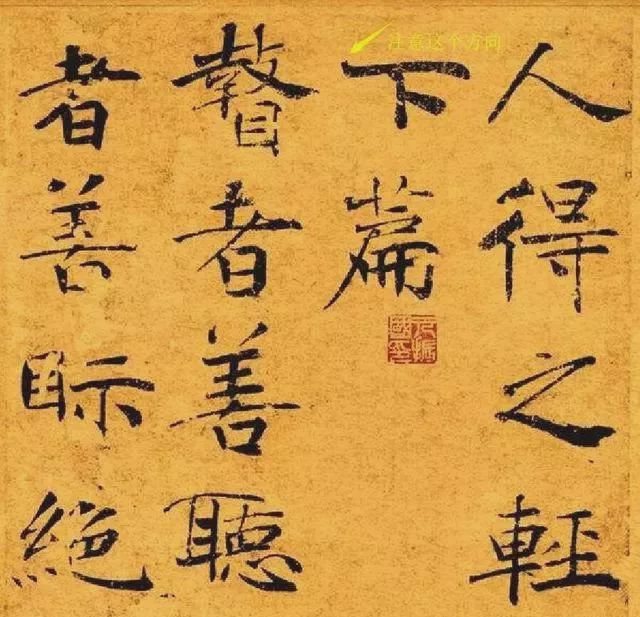 注意这个方向
人得之輕
下篇
瞽者善聽
者善眎絶